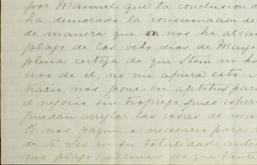 por Manuel que la conclusion d
ha demorado la consumacion de
de manera que on nos ha alcan
plazo de los ocho dias de Mayo
plena certeza de que Stein no
uno de el, no me apura esto
nos pone en aptitud para
el negocio sin tropiezo pues espera
puedan arreglar las casas de ma
nos pague a necesario para
en su totalidad
mo plazo ademas de que